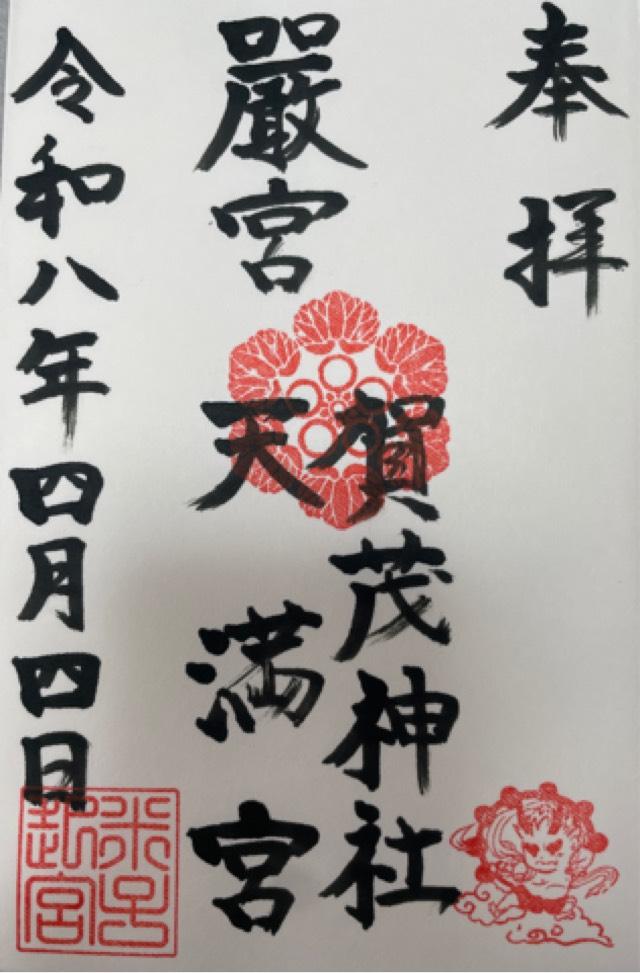 奉拝
嚴宮
賀茂神社
天満宮
令和八年四月四日